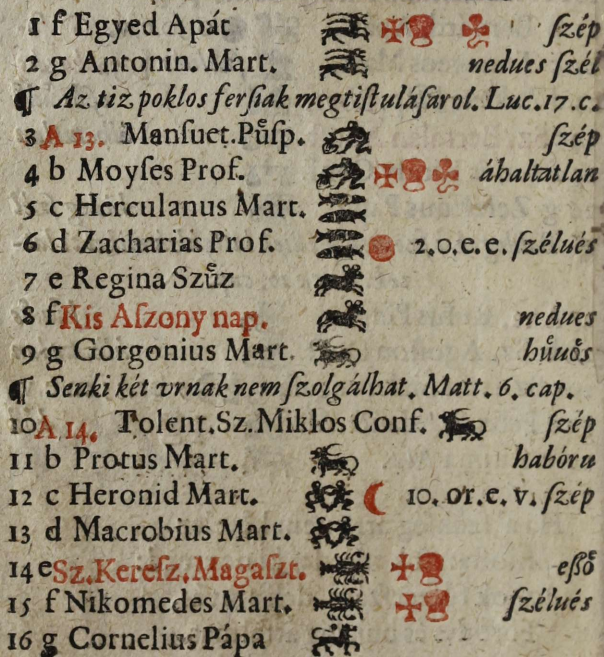 1 f Egyed Apát ſzép
2 g Antonin. Mart. nedues ſzél
¶ Az tiz poklos ferſiak megtiſtuláſarol. Luc.17.c.
3 A 13. Manſuet.Puͤſp. ſzép
4 b Moyſes Prof. áhaltatlan
5 c Herculanus Mart.
6 d Zacharias Prof. 2.o.e.e. ſzélués
7 e Regina Szuͤz
8 f Kis Aſzony nap. nedues
9 g Gorgonius Mart. huͤuoͤs
¶ Senki két vrnak nem ſzolgálhat. Matt. 6. cap.
10 A 14. Tolent.Sz.Miklos Conf. ſzép
11 b Protus Mart. habóru
12 c Heronid Mart. 10. or.e.v. ſzép
13 d Macrobius Mart.
14 e Sz.Kereſz.Magaſzt. eßoͤ
15 f Nikomedes Mart. ſzélués
16 g Cornelius Pápa